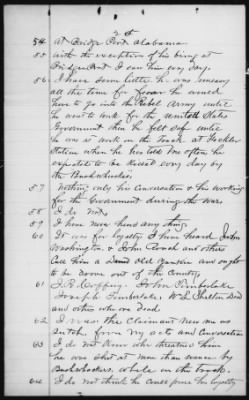 54 at Bridge Port Alabama
55 with the exception of his being at
Bridge Port I saw him every day
56 I have some little he was uneasy
all the time for fear he would
have to go into the Rebel Army until
he went to work for the United States
Government then he felt safe until
he was at work on the track at
Station when he has told me often he
expected to be killed every day by
the Bushwhackers
57 Nothing only his Conversation & his working
for the Government during the war
58 I do not
59 I have never heard any thing
60 It was for loyalty I have heard John
Washington & John and others
Call him a Damd old Yankee and ought
to be drove out of the Country
61 John Timberlake
Joseph Timberlake W.
and others who are Dead
62 I was the Claimant knew me as
such from my acts and Conversation
63 I do not know who threatened him
he was shot at more than once by
Bushwhackers while on the track
64 I do not think he could prove his loyalty